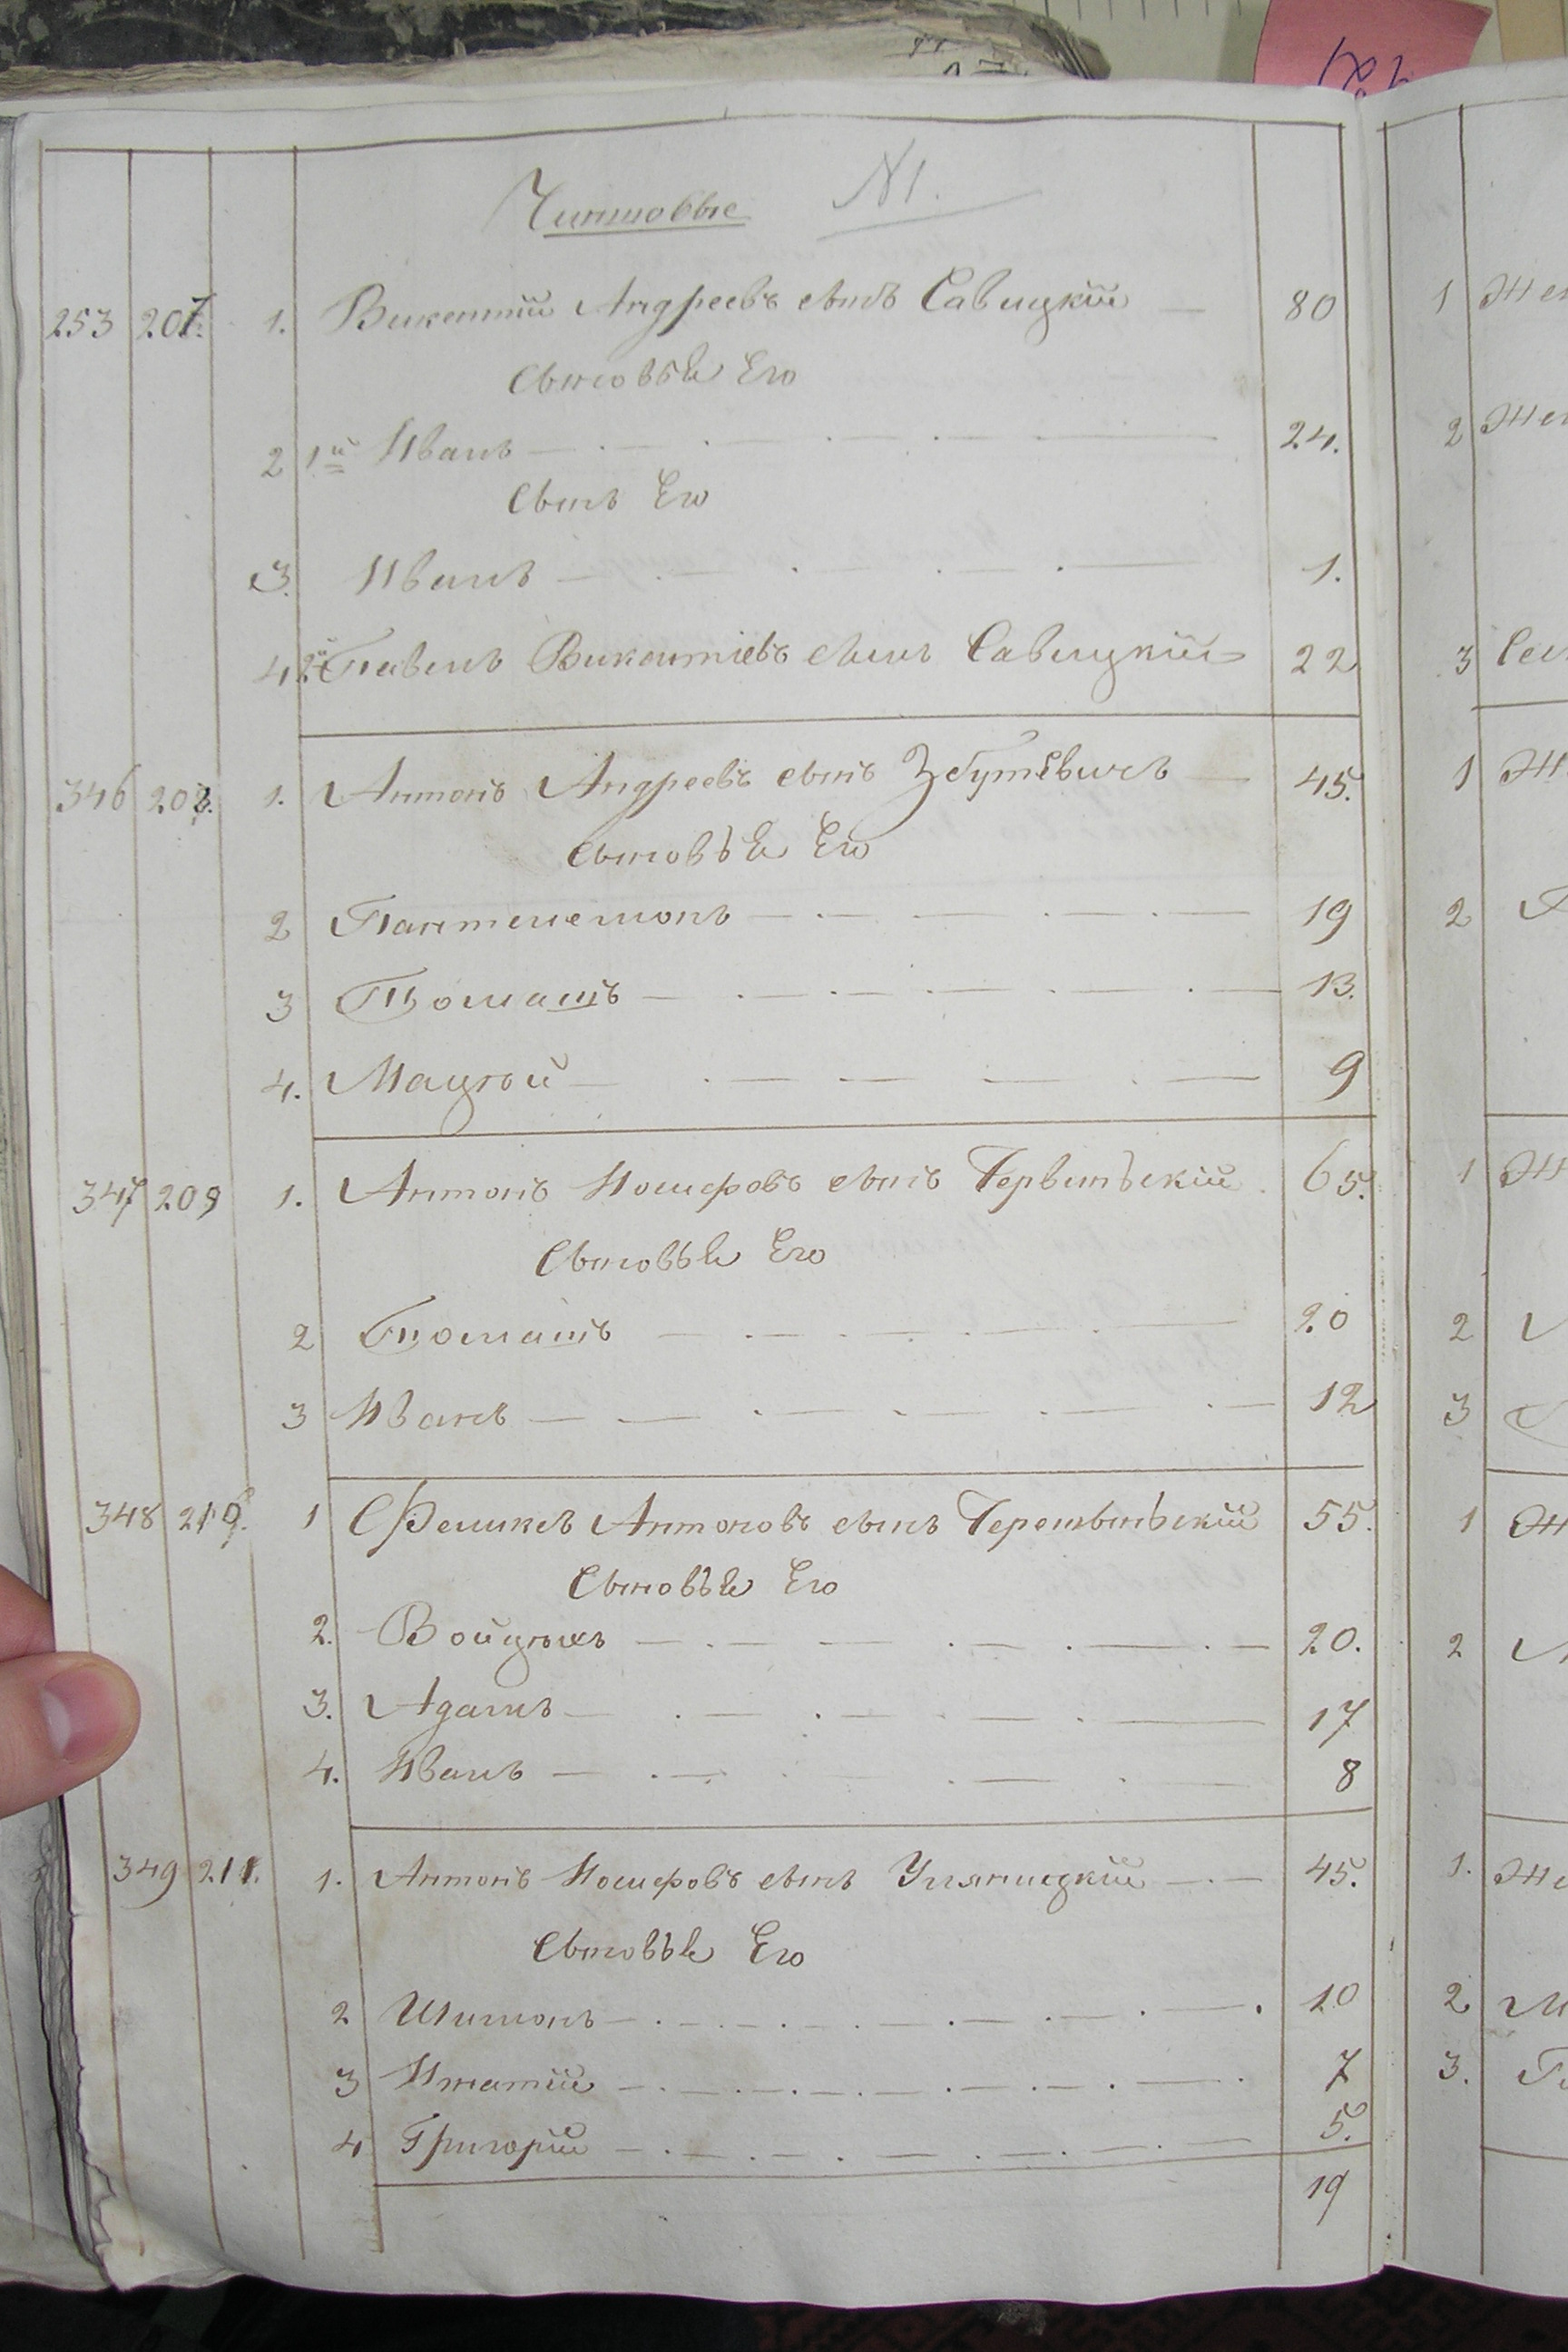 Чиншовые №1.
253 207. 1. Викентий Андреевъ сынъ Савицкий — 80 1
Сыновья Его
2 1й Иванъ — 24. 2
Сынъ Его
3. Иванъ — 1.
4. 2й Павелъ Викентіевъ сынъ Савицкий 22 3
346 208. 1. Антонъ Андреевъ сынъ Збутѣвичъ — 45. 1
Сыновья Его
2 Пантелемонъ — 19 2
3 Томашъ — 13.
4. Мацѣй — 9
347 209 1. Антонъ Іосифовъ сынъ 65. 1
Сыновья Его
2 Томашъ — 20 2
3 Иванъ — 12 3
348 210. 1 Феликсъ Антоновъ сынъ 55. 1
Сыновья Его
2. Войцѣхъ — 20. 2
3. Адамъ — 17
4. Иванъ — 8
349 211. 1. Антонъ Іосифовъ сынъ Уляницкий — 45. 1.
Сыновья Его
2 Шимонъ — 10 2
3 Игнатій — 7 3.
4 Григорій — 5.
19